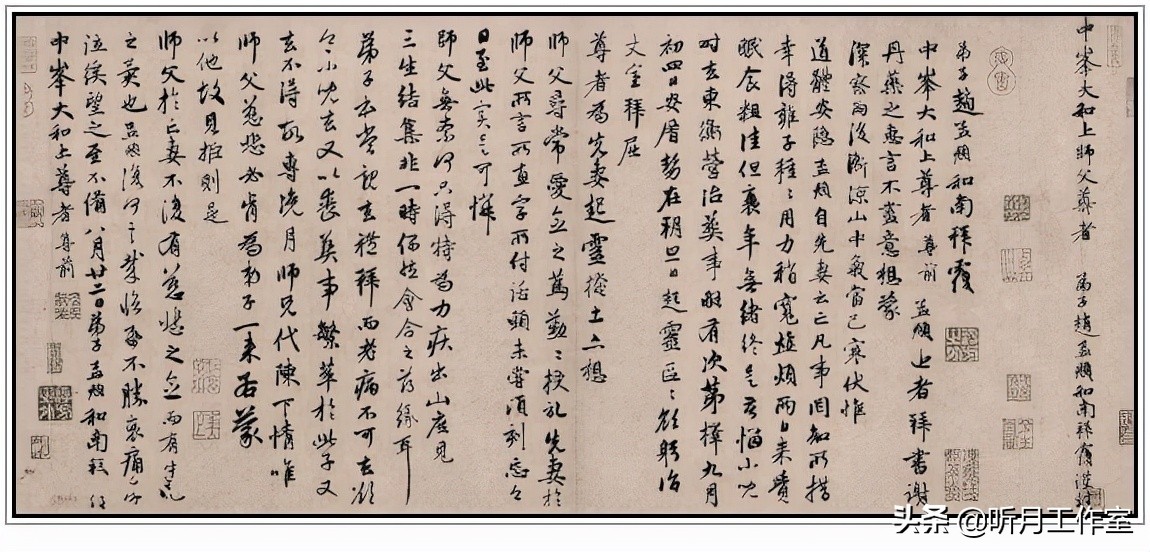 中峯大和上師父尊者 弟子趙孟頫和南拜覆謹封
弟子趙孟頫和南拜覆
中峯大和上尊者 尊前 孟頫上者拜書謝
丹藥之惠言不盡意想蒙
深察雨後漸涼山中氣當已寒伏惟
道體安隱孟頫自先妻云亡凡事罔知所措
幸得雍子種種用力稍寬煩兩日來
眠食粗佳但衰年無緒終是苦惱小兒
時去東衡營治葬事略有次第擇九月
初四日安厝勢在朔旦日起靈區區欲躬詣
丈室拜屈
尊者為先妻起靈掩土亦想
師父尋常愛念之篤勤勤授記先妻於
師父所言所直字所付話頭未嘗頃刻忘之
日至此實是可憐
師父無奈何只得特為力疾出山庶見
三生結集非一時偶然會合之為緣耳
弟子本當親去禮拜而老病不可去欲
令小兒去又以喪葬事繁萃於此子又
去不得故專浼月師兄代陳下情唯
師父慈悲必肯為弟子一來若蒙
以他故見拒則是
師父於亡妻不復有慈悲之念而有生死
之異也孟頫復何言哉臨紙不勝哀痛
泣俟望之至不備八月廿二日弟子孟頫和南拜
中峯大和上尊者 尊前
头条 @昕月工作室